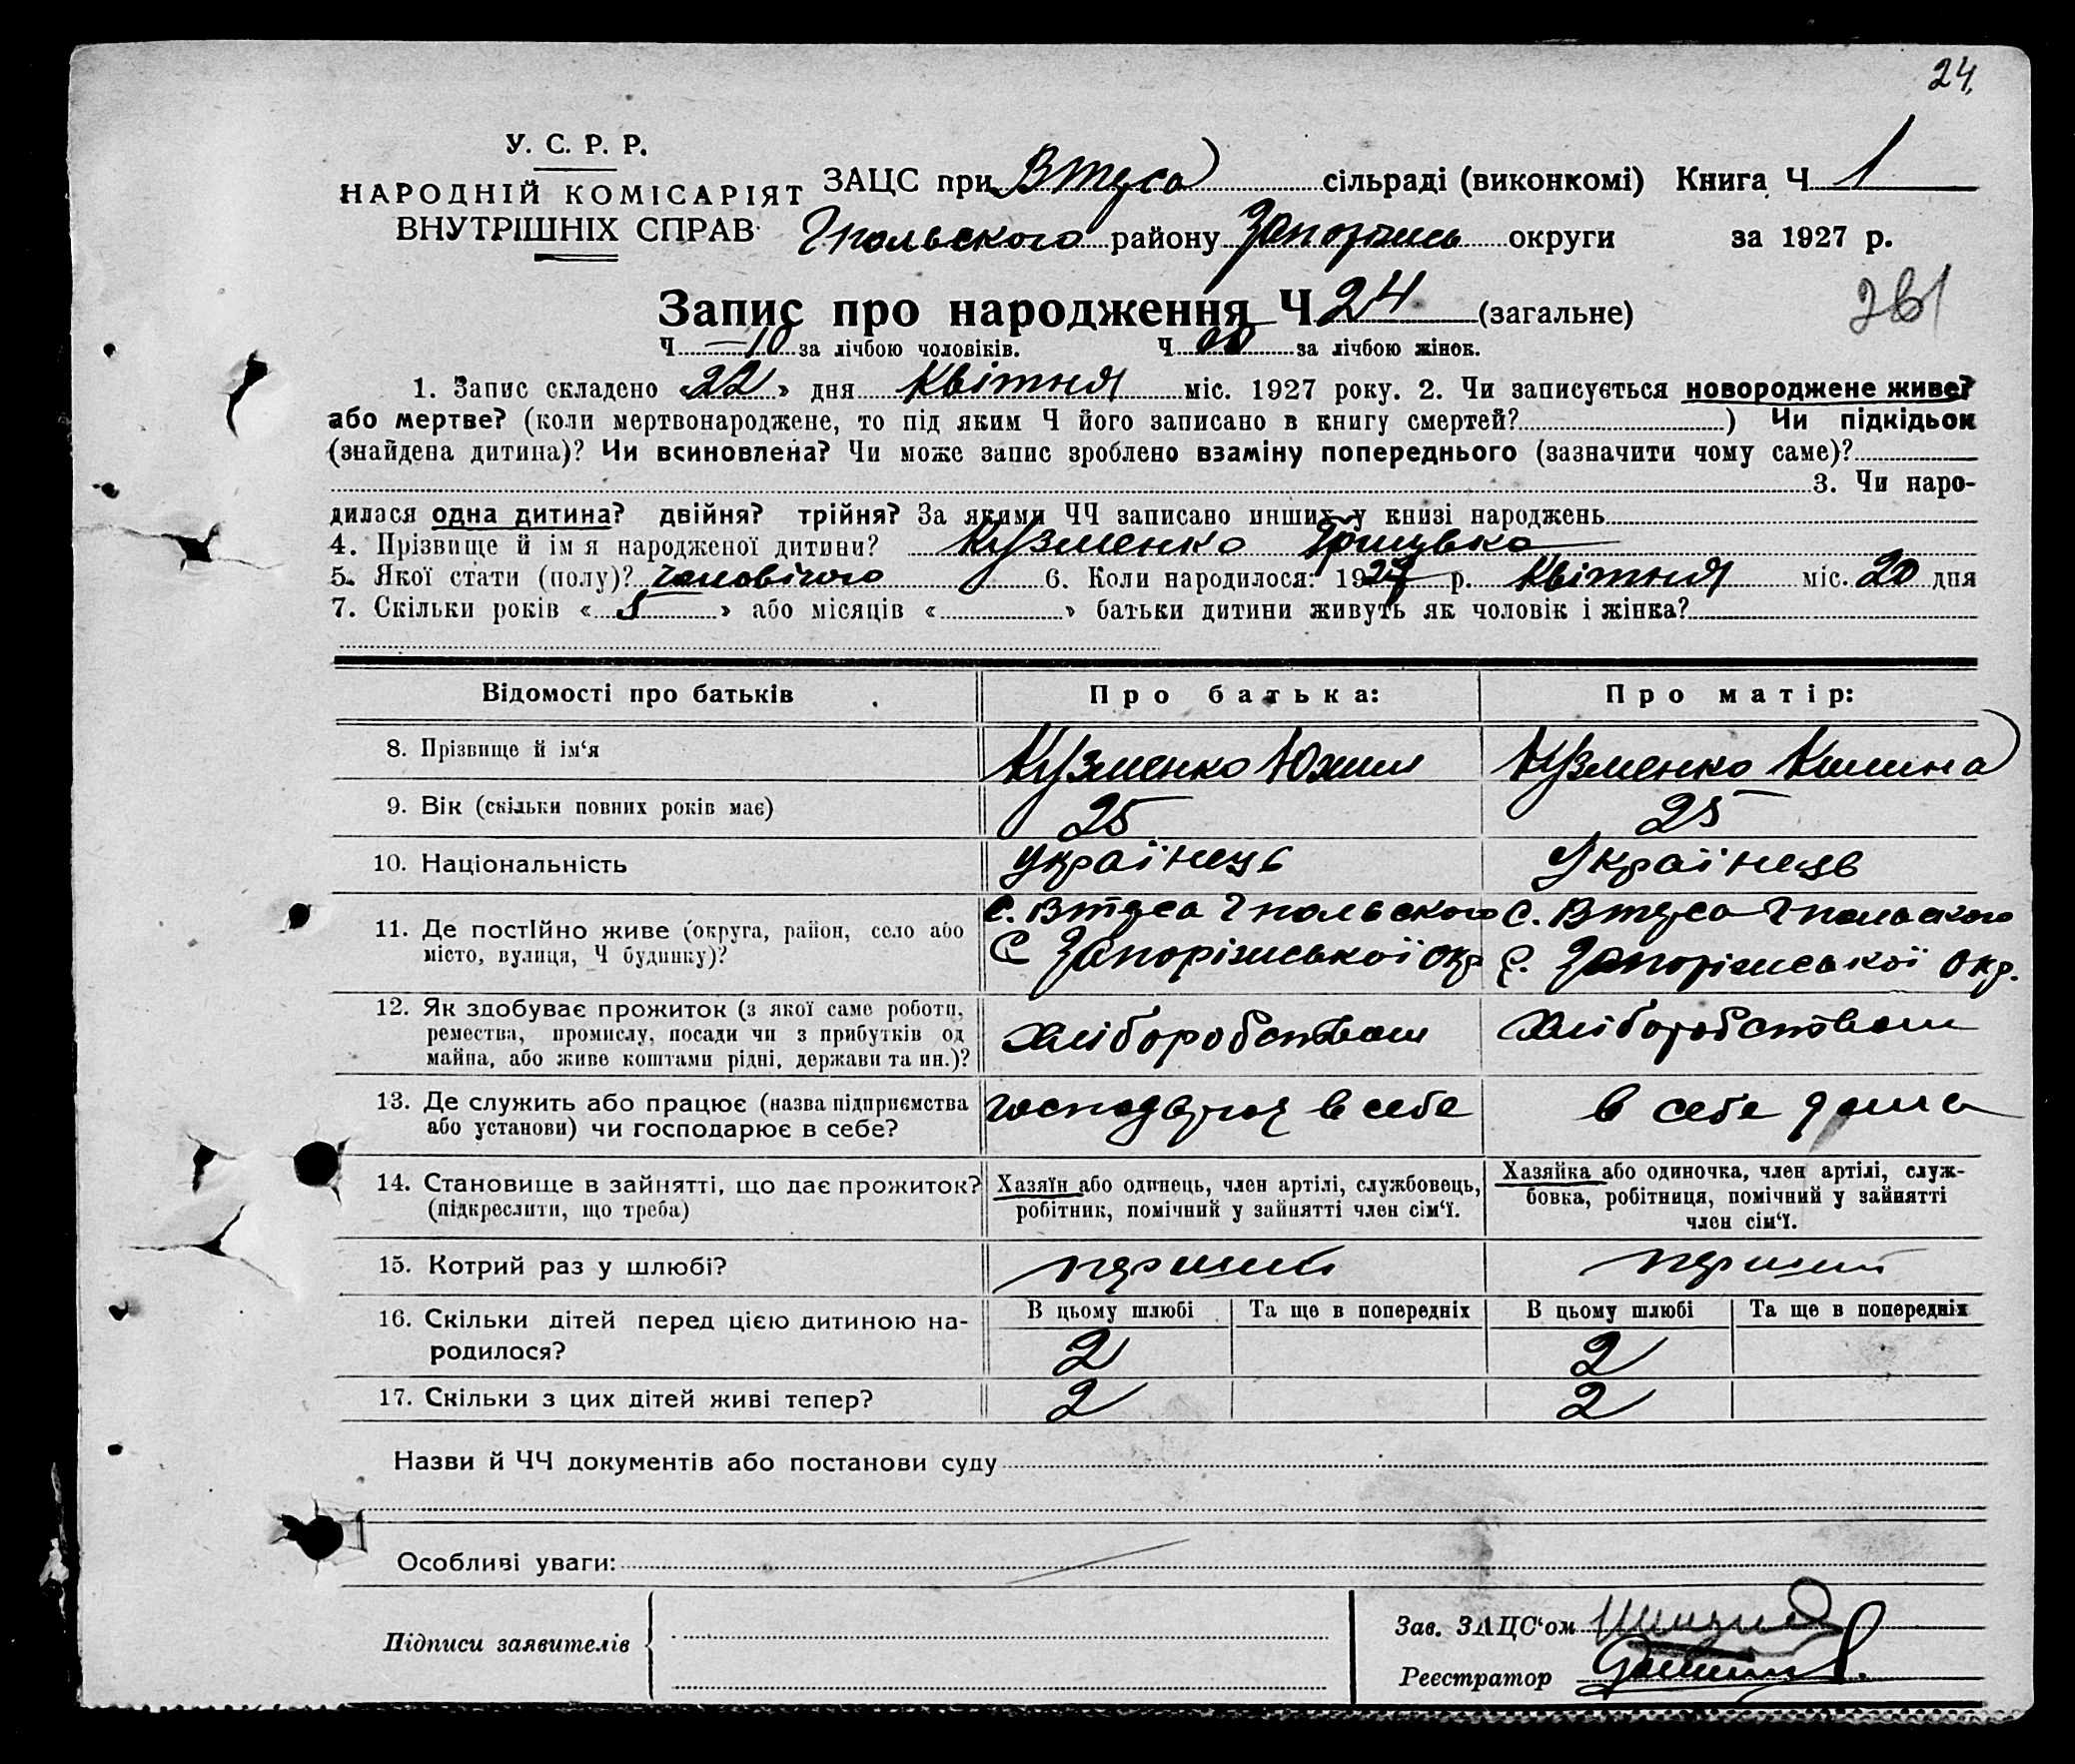 24.
У. С. Р. Р.
НАРОДНІЙ КОМІСАРІЯТ
ВНУТРІШНІХ СПРАВ
ЗАЦС при сільраді (виконкомі) Книга Ч 1
району округи за 1927 р.
Запис про народження Ч 24 (загальне)
Ч 10 за лічбою чоловіків. Ч за лічбою жінок.
1. Запис складено «22» дня Квітня міс. 1927 року. 2. Чи записується новороджене живе?
або мертве? (коли мертвонароджене, то під яким Ч його записано в книгу смертей? ) Чи підкідьок
(знайдена дитина)? Чи всиновлена? Чи може запис зроблено взаміну попереднього (зазначити чому саме)?
3. Чи наро-
дилося одна дитина? двійня? трійня? За якими ЧЧ записано инших у книзі народжень
4. Прізвище й ім я народженої дитини? Кузменко
5. Якої стати (полу)? чоловічого 6. Коли народилося: 1927 р. Квітня міс. 20 дня
7. Скільки років « » або місяців « » батьки дитини живуть як чоловік і жінка?
Відомості про батьків Про батька: Про матір:
8. Прізвище й ім‘я Кузменко Кузменко
9. Вік (скільки повних років має) 25 25
10. Національність Українець Українець
11. Де постійно живе (округа, район, село або
місто, вулиця, Ч будинку)? Запоріжської окр Запоріжської Окр.
12. Як здобуває прожиток (з якої саме роботи,
ремества, промислу, посади чи з прибутків од
майна, або живе коштами рідні, держави та ин.)? Хліборобством Хліборобством
13. Де служить або працює (назва підприємства
або установи) чи господарює в себе? в себе в себе дома
14. Становище в зайнятті, що дає прожиток?
(підкреслити, що треба)
Хазяїн або одинець, член артілі, службовець,
робітник, помічний у зайнятті член сім‘ї.
Хазяйка або одиночка, член артілі, служ-
бовка, робітниця, помічний у зайнятті
член сім‘ї.
15. Котрий раз у шлюбі? перший перший
16. Скільки дітей перед цією дитиною на-
родилося?
В цьому шлюбі Та ще в попередніх В цьому шлюбі Та ще в попередніх
2 2
17. Скільки з цих дітей живі тепер? 2 2
Назви й ЧЧ документів або постанови суду
Особливі уваги:
Підписи заявителів
Зав. ЗАЦС‘ом
Реєстратор